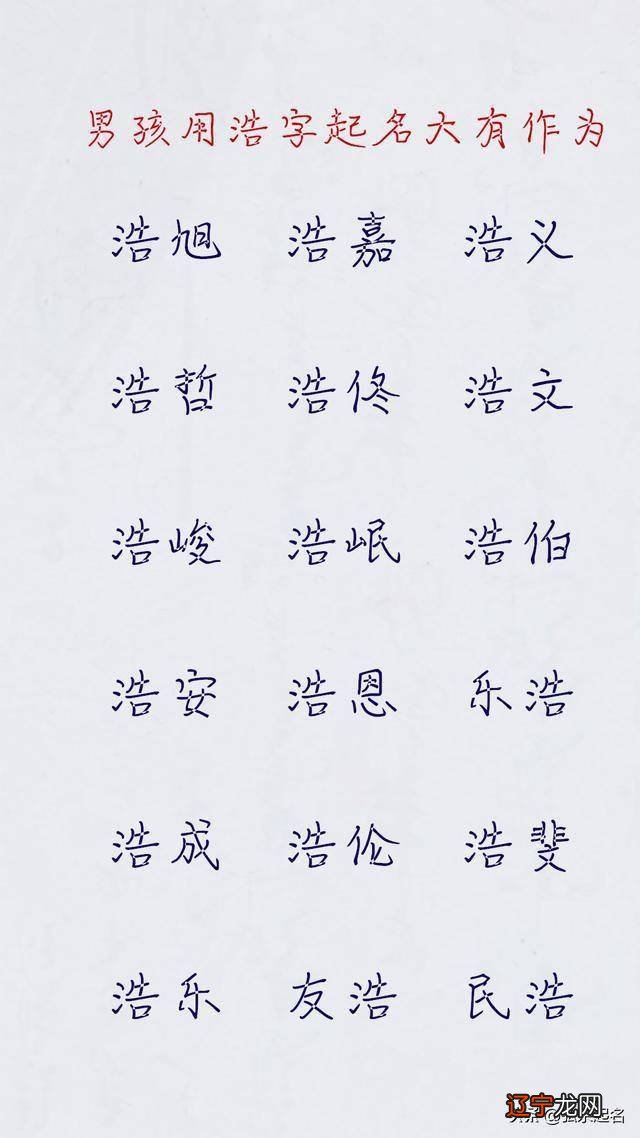 男孩用浩字起名大有作为
浩旭 浩嘉 浩义
浩哲 浩佟 浩文
浩峻 浩岷 浩伯
浩安 浩恩 乐浩
浩成 浩伦 浩斐
浩乐 友浩 民浩
辽宁龙网